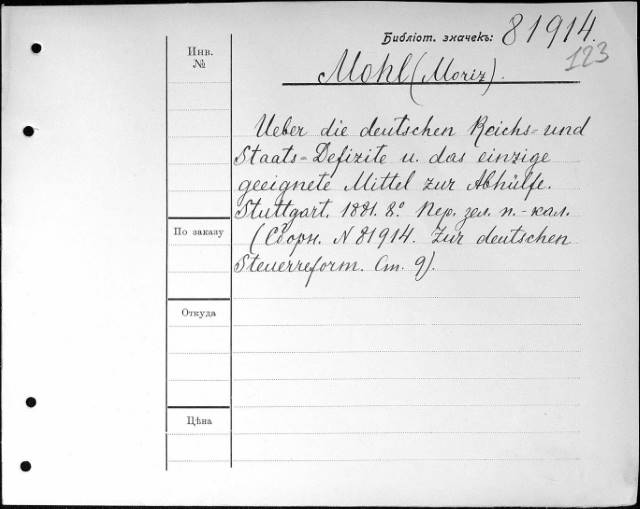 Библіот. значекъ: 81914.
123
Инв.
№
Mohl (Moriz).
Ueber die deutschen Reichs- und
Staats-Defizite u. das einzige
geeignete Mittel zur Abhülfe.
Stuttgart. 1881. 8º. Пер. зел. п.-кал.
По заказу
(Сборн. N 81914. Zur deutschen
Steuerreform. Ст. 9).
Откуда
Цѣна